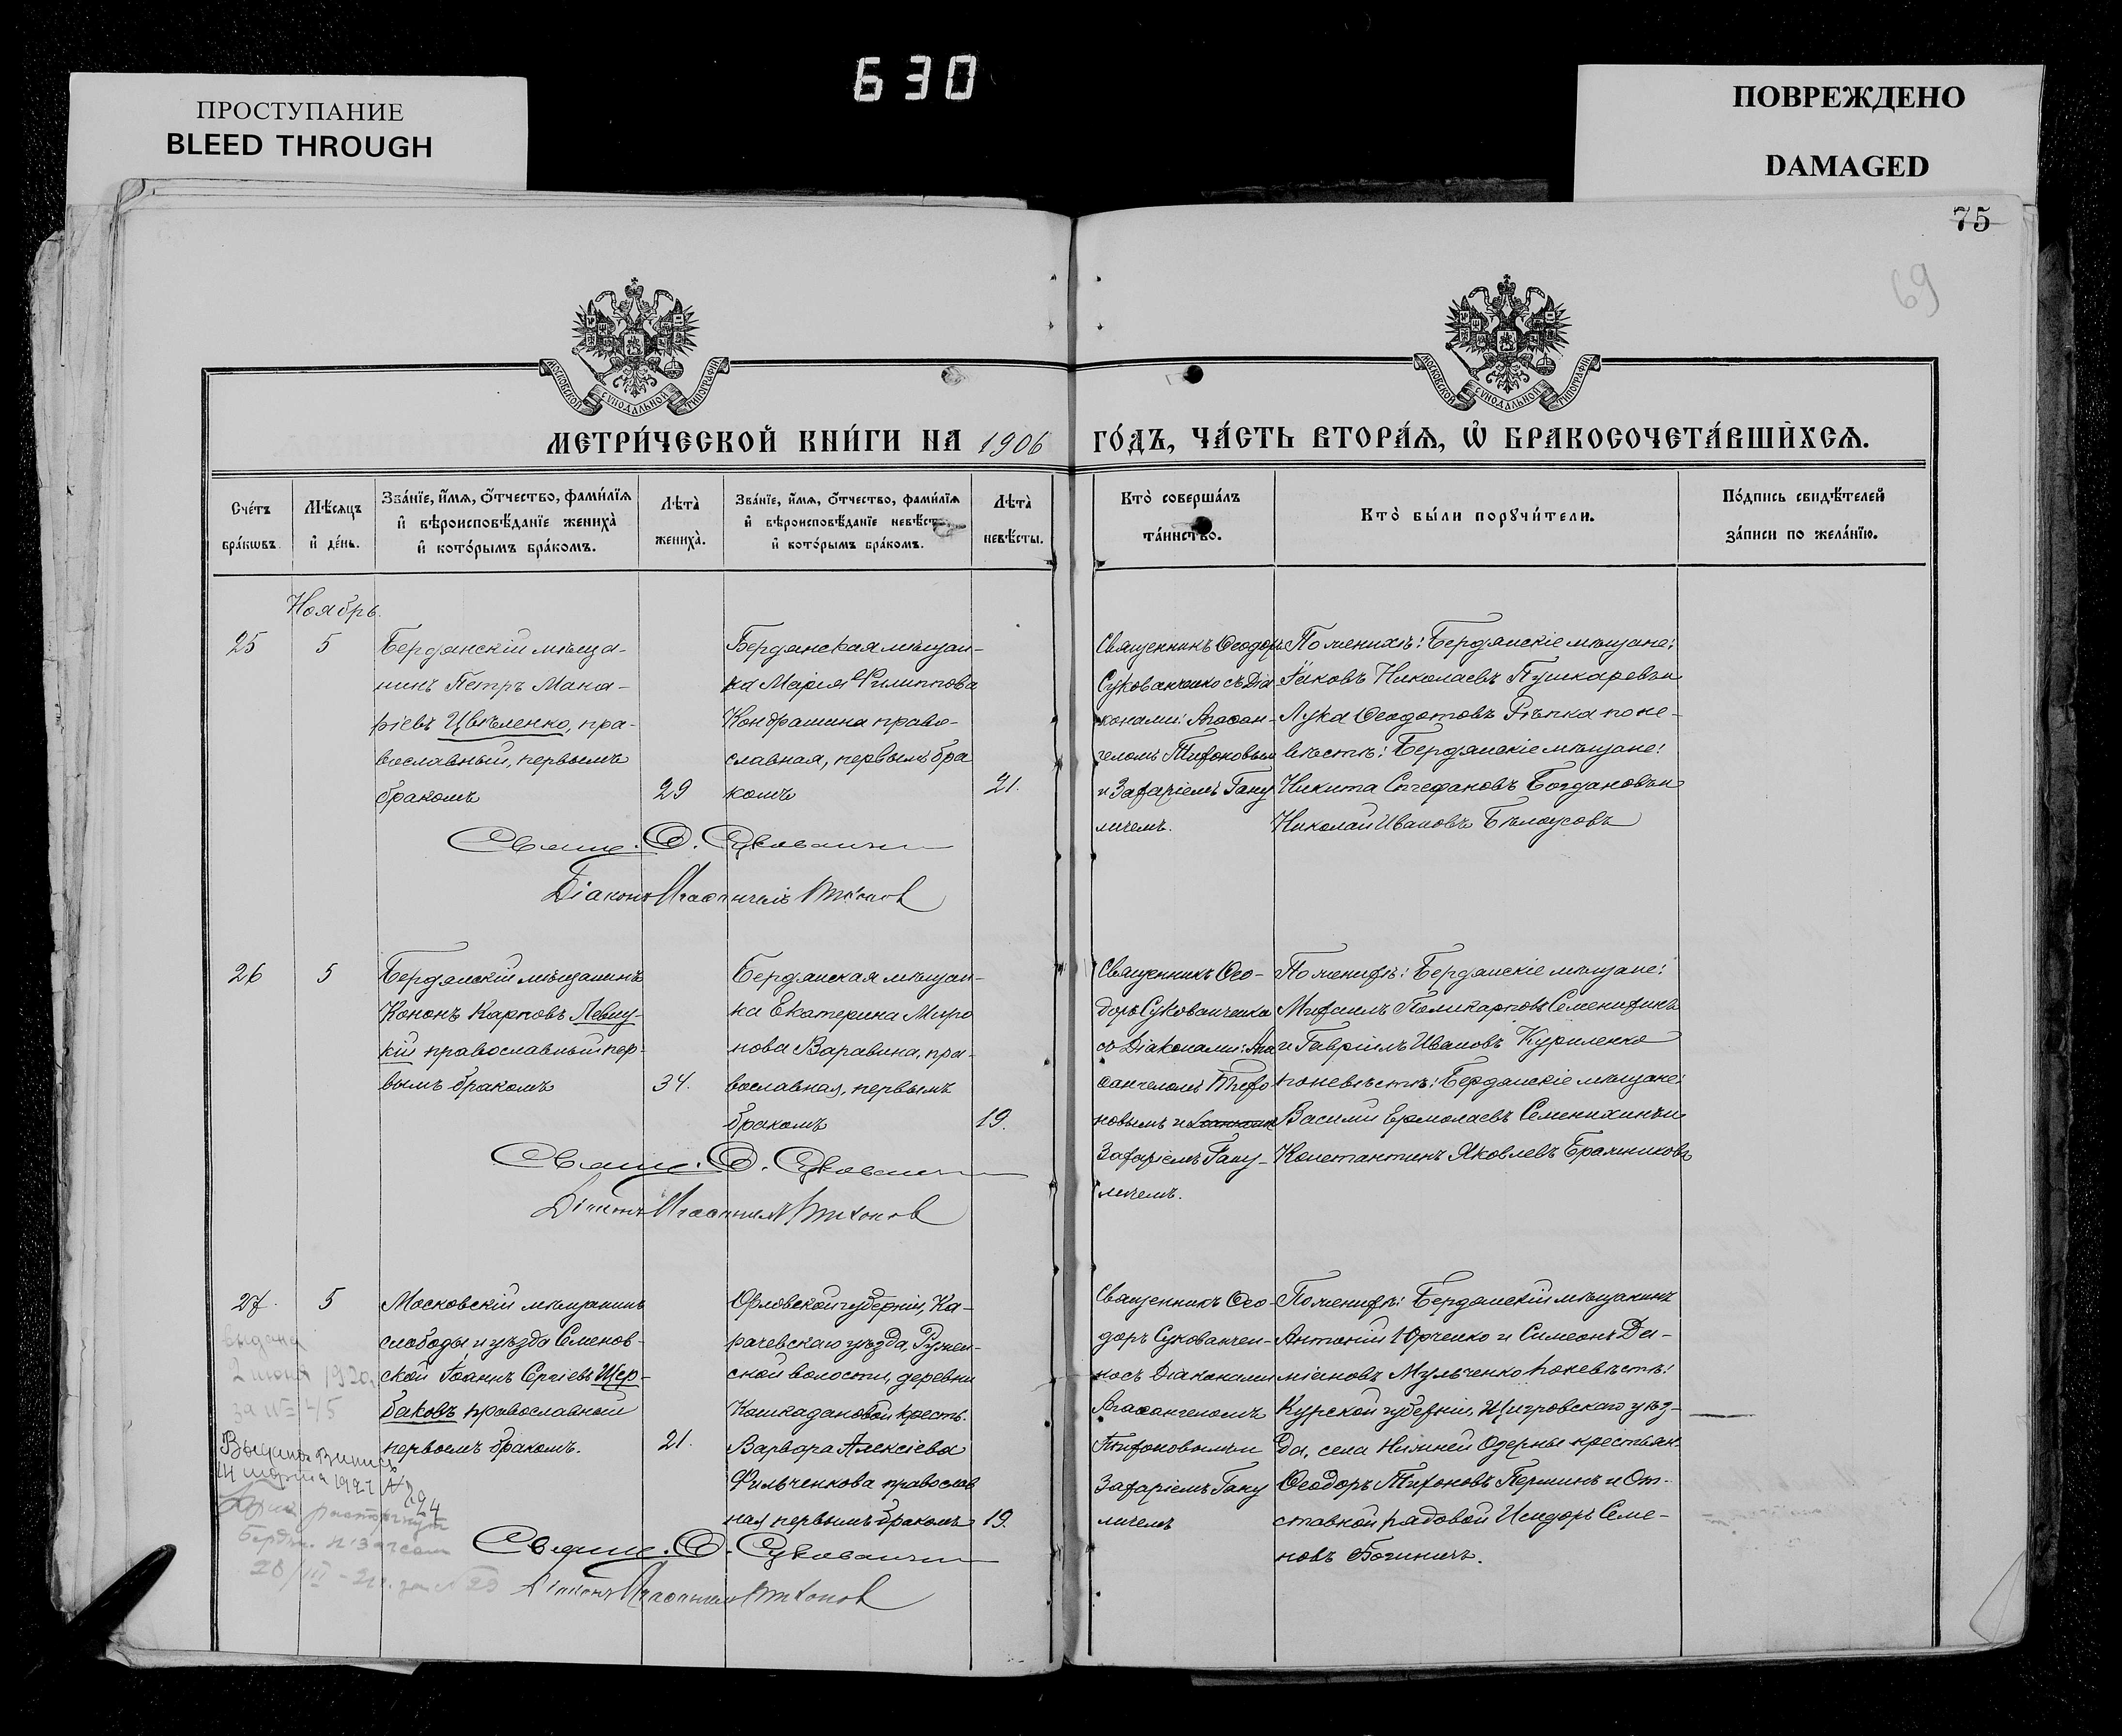 630
ПРОСТУПАНИЕ
BLEED THROUGH
ПОВРЕЖДЕНО
DAMAGED
75
69
МОСКОВСКОЙ СѴНОДАЛЬНОЙ ТИПОГРАФІИ
МОСКОВСКОЙ СѴНОДАЛЬНОЙ ТИПОГРАФІИ
МЕТРИ́ЧЕСКОЙ КНИ́ГИ НА 1906 ГО́ДЪ, ЧА́СТЬ ВТОРА́Я, Ѡ҆ БРАКОСОЧЕТА́ВШИХСЯ.
Сче́тъ
бра́кѡвъ.
Мѣ́сяцъ
и҆ де́нь.
Зва́нїе, и҆́мя, ѻ҆́тчество, фами́лїя
и҆ вѣроисповѣ́данїе жениха̀
и҆ кото́рымъ бра́комъ.
Лѣта̀
жениха̀.
Зва́нїе, и҆́мя, ѻ҆́тчество, фами́лїя
и҆ вѣроисповѣ́данїе невѣ́сты
и҆ кото́рымъ бра́комъ.
Лѣта̀
невѣ́сты.
Кто̀ соверша́лъ
та́инство.
Кто̀ бы́ли порꙋчи́тели.
По́дпись свидѣ́телей
за́писи по жела́нїю.
Ноябрь.
25
5
Бердянскій мѣща-
нинъ Петръ Мака-
ріевъ Цвѣленко, пра-
вославный, первымъ
бракомъ
29
Бердянская мѣщан-
ка Марія Филиппова
Кондрашина право-
славная, первымъ бра
комъ
21.
Священникъ Ѳеодоръ
Сукованченко съ Діа
конами: Агаѳан-
геломъ Тихоновым
и Захаріемъ Гану
личемъ.
По женихѣ: Бердянскіе мѣщане:
Іаковъ Николаевъ Пушкаревъ и
Лука Ѳеодотовъ Рѣпка по не-
вѣстѣ: Бердянскіе мѣщане:
Никита Стефановъ Богдановъ и
Николай Ивановъ Бѣлоусовъ
Свящ. Ѳ. Сукованч
Діаконъ Агаѳангелъ Тихонов
26
5
Бердянскій мѣщанинъ
Кононъ Карповъ Левиц-
кій православный пер-
вымъ бракомъ
34.
Бердянская мѣщан-
ка Екатерина Миро
нова Варавина, пра-
вославная, первымъ
бракомъ
19.
Священникъ Ѳео-
доръ Сукованченко
съ Діаконами: Ага
ѳангеломъ Тихо
новымъ и
Захаріемъ Гану-
личемъ.
По женихѣ: Бердянскіе мѣщане:
Михаилъ Поликарповъ Семенихинъ
и Гавріилъ Ивановъ Куриленко
по невѣстѣ: Бердянскіе мѣщане:
Василій Ермолаевъ Семенихинъ и
Константинъ Яковлевъ Бражниковъ
Свящ. Ѳ. Сукованч
Діаконъ Агаѳангелъ Тихонов
27.
5
Московскій мѣщанинъ
слободы и уѣзда Семенов-
ской Іоаннъ Сергіевъ Щер-
баковъ православный
первымъ бракомъ.
21.
Орловской губерніи, Ка-
рачевскаго уѣзда, Ружен-
ской волости, деревни
Кошкадановой крест.
Варвара Алексіева
Фильченкова православ
ная первымъ бракомъ
19.
Священникъ Ѳео-
доръ Сукованчен-
ко съ Діаконами
Агаѳангеломъ
Тихоновымъ и
Захаріемъ Гану
личемъ
По женихѣ: Бердянскій мѣщанинъ
Антоній Юрченко и Симеонъ Да-
міановъ Мульченко по невѣстѣ:
Курской губерніи, Щигровскаго уѣз-
да, села Нижней Озерны крестьян.
Ѳеодоръ Тихоновъ Першинъ и От-
ставной рядовой Исидоръ Семе-
новъ Богиничъ.
выдана
2 июня 1920 г.
за № 45
Выдана выпись
14 марта 1927 № 294
Брак расторгнут
Бердян.
28/III
Свящ. Ѳ. Сукованч
Діаконъ Агаѳангелъ Тихонов